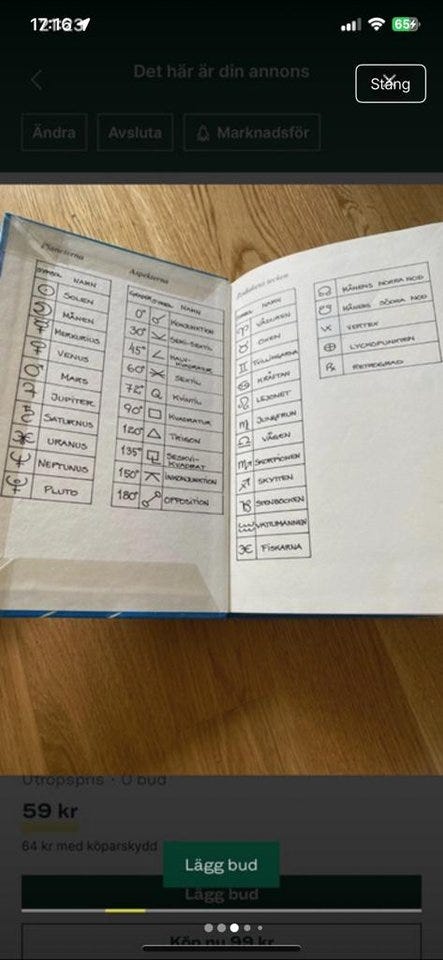 17:16
65
Det här är din annons
Stäng
Ändra
Avsluta
Marknadsför
Planeterna
SYMBOL NAMN
SOLEN
MÅNEN
MERKURIUS
VENUS
MARS
JUPITER
SATURNUS
URANUS
NEPTUNUS
PLUTO
Aspekterna
GRADER SYMBOL NAMN
0° KONJUNKTION
30° SEMI-SEXTIL
45° HALV-
KVADRATUR
60° SEXTIL
72° Q KVINTIL
90° KVADRATUR
120° TRIGON
135° SESKVI-
KVADRAT
150° INKONJUNKTION
180° OPPOSITION
Zodiakens tecken
SYMBOL NAMN
♈ VÄDUREN
♉ OXEN
♊ TVILLINGARNA
♋ KRÄFTAN
♌ LEJONET
♍ JUNGFRUN
♎ VÅGEN
♏ SKORPIONEN
♐ SKYTTEN
♑ STENBOCKEN
♒ VATTUMANNEN
♓ FISKARNA
☊ MÅNENS NORRA NOD
☋ MÅNENS SÖDRA NOD
VERTEX
⊕ LYCKOPUNKTEN
℞ RETROGRAD
Utropspris · 0 bud
59 kr
64 kr med köparskydd
Lägg bud
Lägg bud
Köp nu 99 kr